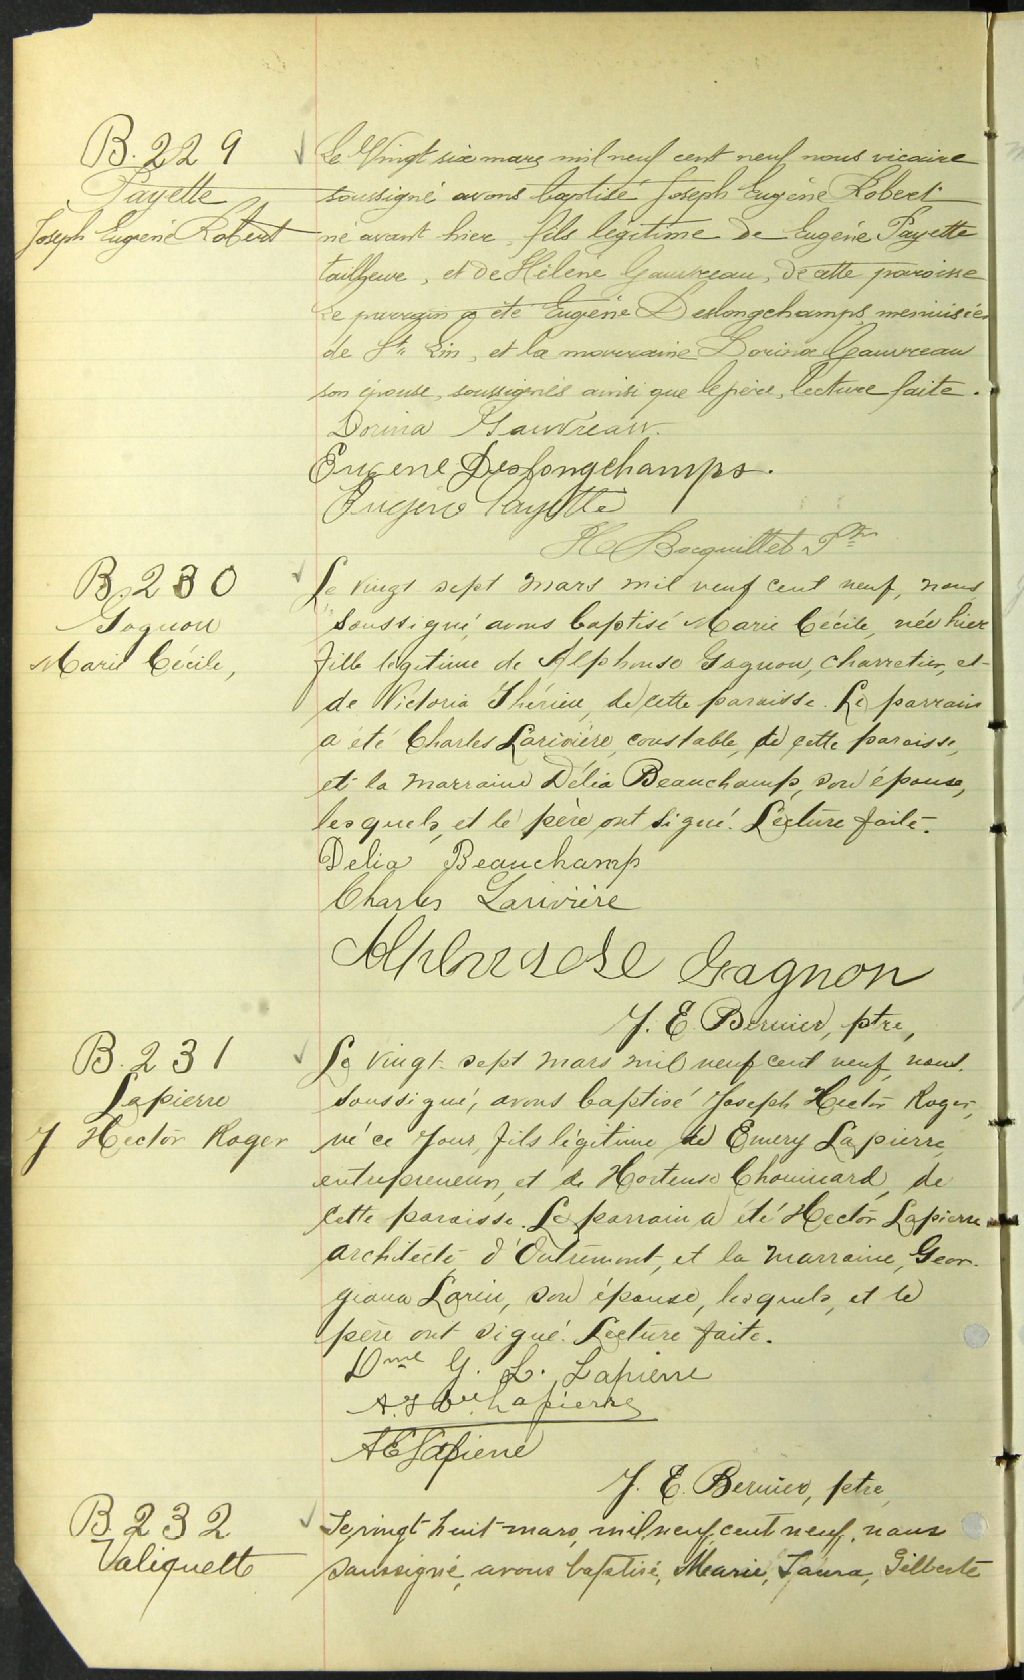 B. 229
Payette
Joseph Eugène Robert
Le Vingt six mars mil neuf cent neuf nous vicaire
soussigné avons baptisé Joseph Eugène Robert
né avant hier, fils légitime de Eugène Payette
tailleur, et de Hélène Gauvreau, de cette paroisse
Le parrain a été Eugène Deslongchamps, menuisier
de St. Lin, et la marraine Dorina Gauvreau
son épouse, soussignés ainsi que le père, lecture faite.
Dorina Gauvreau.
Eugene Deslongchamps.
Eugène Payette
H Bocquillet Ptre
B. 230
Gagnon
Marie Cécile,
Le vingt sept mars mil neuf cent neuf, nous
soussigné avons baptisé Marie Cécile, née hier
fille légitime de Alphonse Gagnon, charretier, et
de Victoria Thérien, de cette paroisse. Le parrain
a été Charles Larivière, constable, de cette paroisse,
et la marraine Délia Beauchamp, son épouse,
lesquels, et le père ont signé. Lecture faite.
Delia Beauchamp
Charles Larivière
Alphonse Gagnon
J. E. Bernier, ptre,
B. 231
Lapierre
J Hector Roger
Le vingt-sept mars mil neuf cent neuf, nous
soussigné, avons baptisé Joseph Hector Roger,
né ce jour, fils légitime de Emery Lapierre,
entrepreneur, et de Hortense Chouinard, de
cette paroisse. Le parrain a été Hector Lapierre
architecte d'Outremont, et la marraine, Geor-
giana Lorin, son épouse, lesquels, et le
père ont signé. Lecture faite.
Dme G. L. Lapierre
Lapierre
A E Lapierre
J. E. Bernier, ptre,
B. 232
Valiquette
Le vingt huit mars, mil neuf cent neuf, nous
soussigné, avons baptisé, Marie, Laura, Gilberte